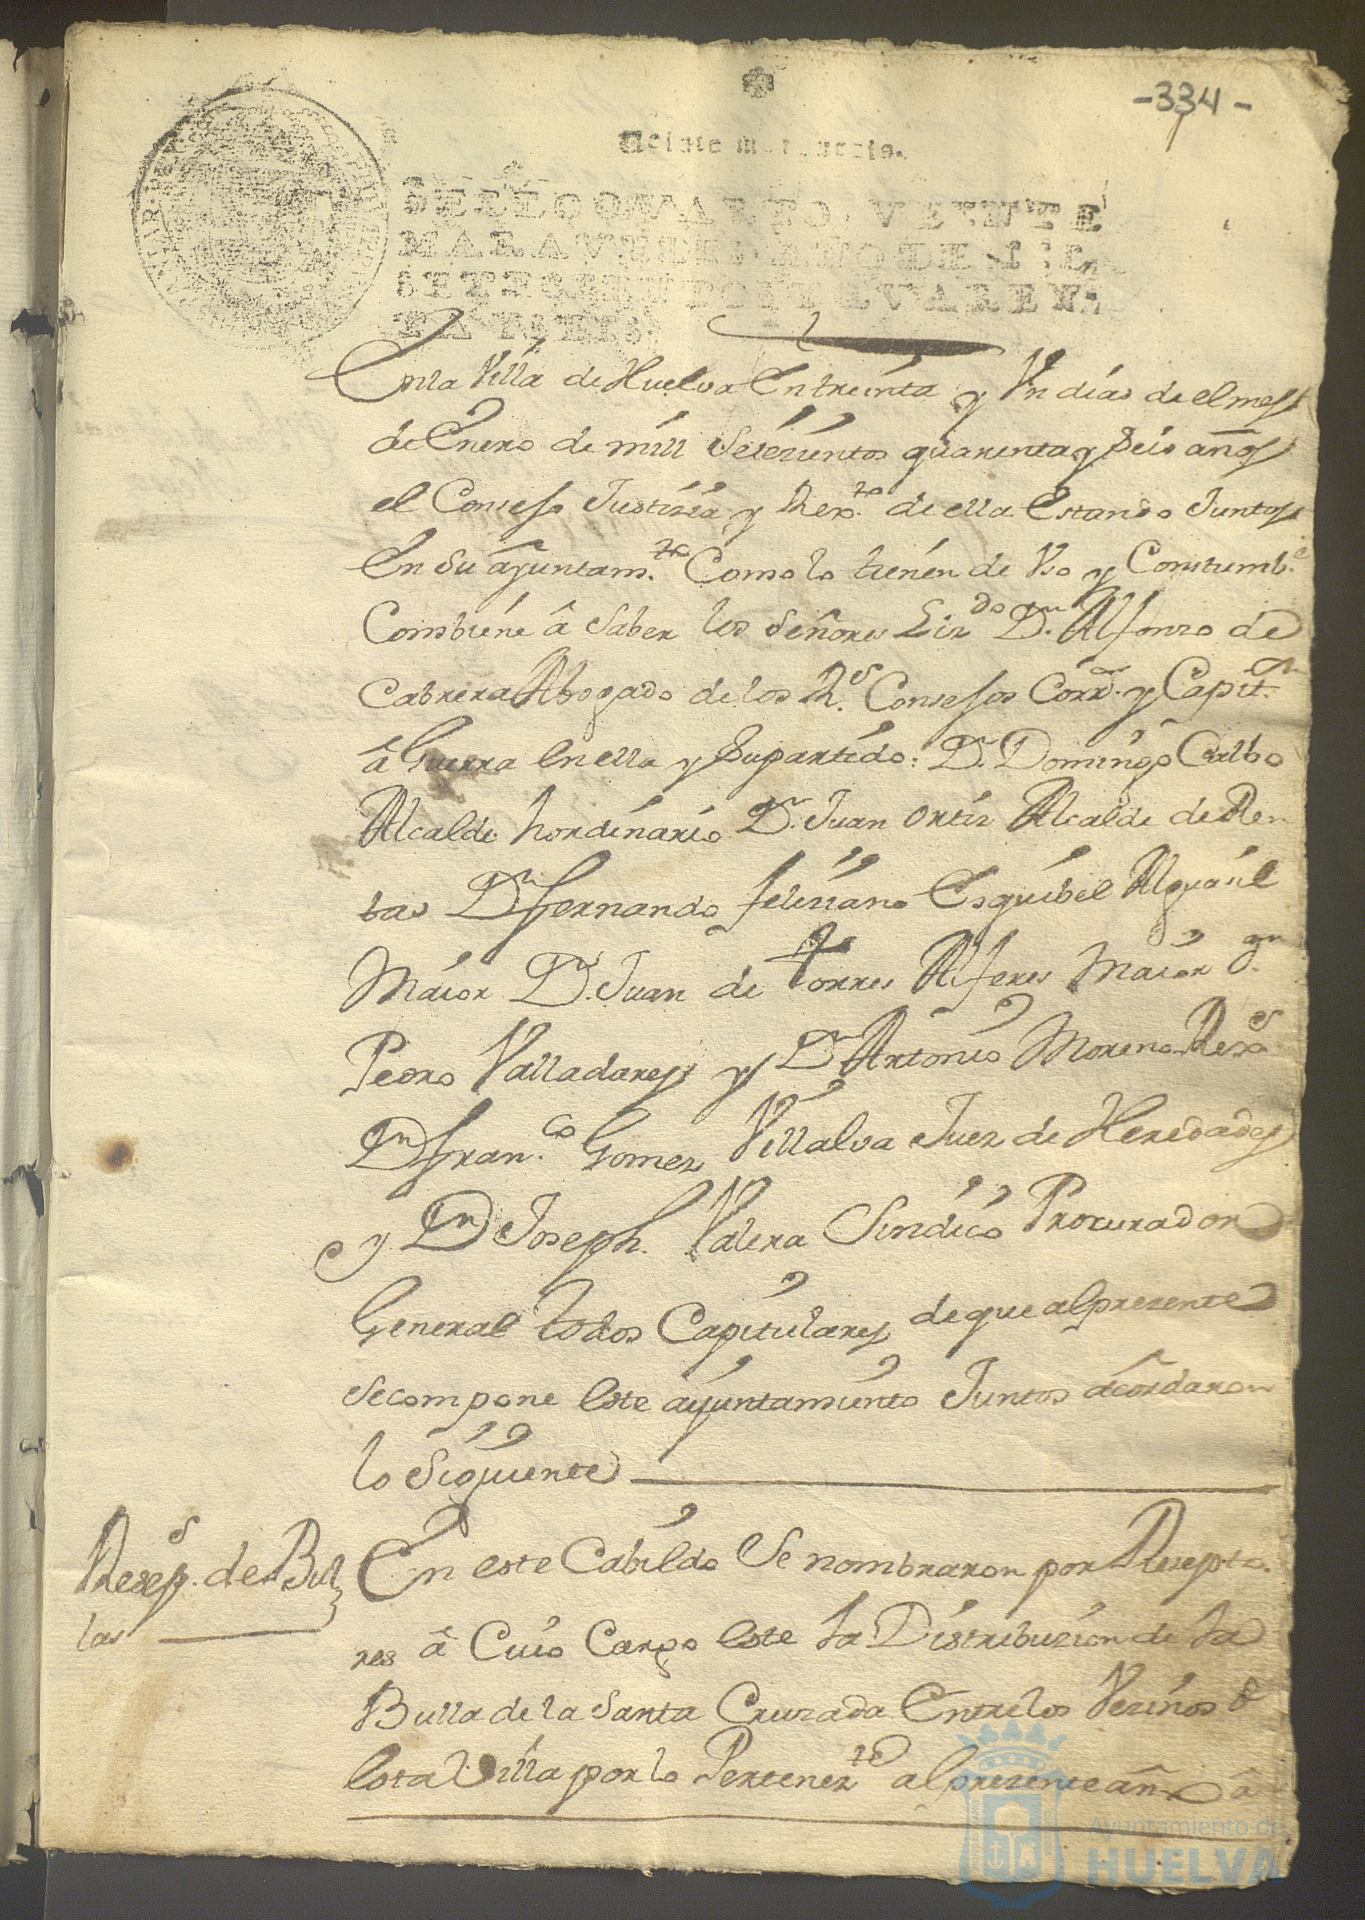 -334-
Veinte maravedis.
SELLO QVARTO, VEINTE
MARAVEDIS, AÑO DE MIL
SETECIENTOS Y QVAREN-
TA Y SEIS.
En la Villa de Huelva En treinta y Vn dias de el mes
de Enero de mill Setezientos quarenta y Seis años
el Consejo Justizia y Rexto. de ella Estando Juntos
En Su ayuntamto. Como lo tienen de Vso y Constumbe.
Combiene â Saber los Señores Lizdo Dn. Alfonzo de
Cabrera Abogado de los Rs. Consejos Corrr. y Capitn.
â Guerra en ella y Supartido: Dn. Domingo Calbo
Alcalde hordinario Dn. Juan Ortiz Alcalde de Ren
tas Dn fernando feliziano Esquibel Alguasil
Maior Dn. Juan de torres Alferes Maior Dn.
Pedro Valladares y Dn Antonio Moreno Rexs
Dn franco. Gomez Villalva Juez de Heredades
y Dn Joseph. Valera Sindico Procurador
General todos Capitulares de que al prezente
Se compone este ayuntamiento Juntos acordaron
lo Siguiente
Reseps. de Bul
las
En este Cabildo Se nombraron por Resepto-
res â Cuio Cargo este la Distribuzion de la
Bulla de la Santa Cruzada Entre los Vezinos de
esta Villa por lo Pertenezte al prezente año â
Ayuntamiento de
HUELVA